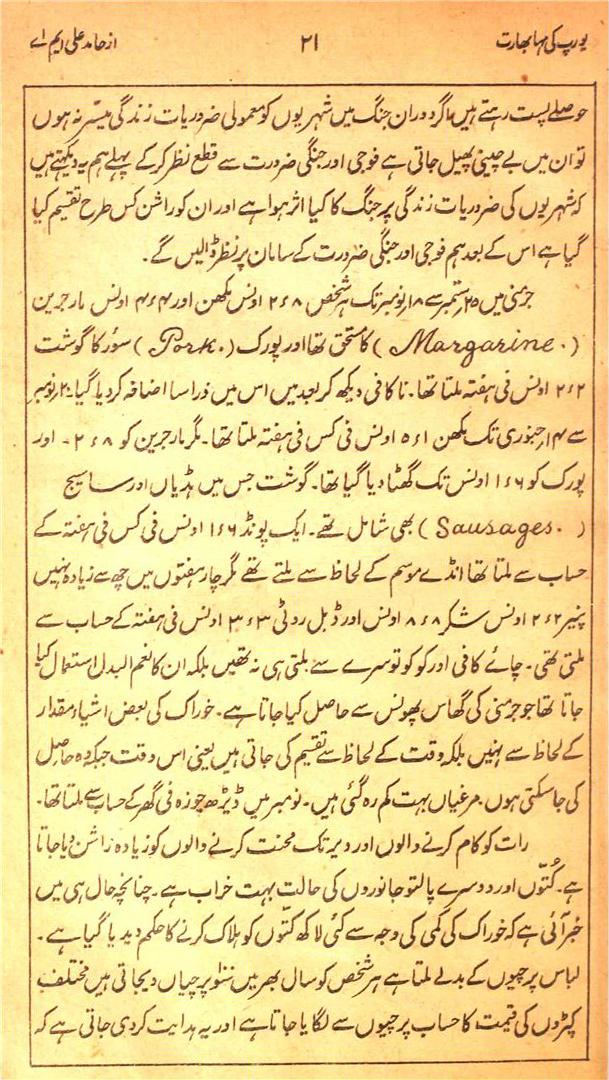 یورپ کی مہا بھارت ۲۱ از حامد علی ایم اے
حوصلے پست رہتے ہیں اگر دوران جنگ میں شہریوں کو معمولی ضروریات زندگی میسر نہ ہوں
تو ان میں بے چینی پھیل جاتی ہے فوجی اور جنگی ضرورت سے قطع نظر کرکے پہلے ہم یہ دیکھتے ہیں
کہ شہریوں کی ضروریات زندگی پر جنگ کا کیا اثر ہوا ہے اور ان کو راشن کس طرح تقسیم کیا
گیا ہے اس کے بعد ہم فوجی اور جنگی ضرورت کے سامان پر نظر ڈالیں گے۔
جرمنی میں ۲۵ ستمبر سے ۱۸ نومبر تک ہر شخص ۲۶۸ اونس مکھن اور ۴۶۴ اونس مارجرین
(Margarine.) کا مستحق تھا اور پورک (Pork.) سؤر کا گوشت
۲۶۲ اونس فی ہفتہ ملتا تھا۔ ناکافی دیکھ کر بعد میں اس میں ذرا سا اضافہ کر دیا گیا۔ ۲۰ نومبر
سے ۱۴ جنوری تک مکھن ۵۶۱ اونس فی کس فی ہفتہ ملتا تھا۔ مگر مارجرین کو ۲۶۸۔ اور
پورک کو ۱۶۶ اونس تک گھٹا دیا گیا تھا۔ گوشت جس میں ہڈیاں اور ساسیج
(Sausages.) بھی شامل تھے۔ ایک پونڈ ۱۶۶ اونس فی کس فی ہفتہ کے
حساب سے ملتا تھا انڈے موسم کے لحاظ سے ملتے تھے مگر چار ہفتوں میں چھ سے زیادہ نہیں
پنیر ۲۶۲ اونس شکر ۸۶۸ اونس اور ڈبل روٹی ۳۶۳ اونس فی ہفتہ کے حساب سے
ملتی تھی۔ چائے کافی اور کوکو تو سرے سے ملتی ہی نہ تھیں بلکہ ان کا نعم البدل استعمال کیا
جاتا تھا جو جرمنی کی گھاس پھونس سے حاصل کیا جاتا ہے۔ خوراک کی بعض اشیاء مقدار
کے لحاظ سے نہیں بلکہ وقت کے لحاظ سے تقسیم کی جاتی ہیں یعنی اس وقت جبکہ وہ حاصل
کی جا سکتی ہوں۔ مرغیاں بہت کم رہ گئی ہیں۔ نومبر میں ڈیڑھ چوزہ فی گھر کے حساب سے ملتا تھا۔
رات کو کام کرنے والوں اور دیر تک محنت کرنے والوں کو زیادہ راشن دیا جاتا
ہے۔ کُتّوں اور دوسرے پالتو جانوروں کی حالت بہت خراب ہے۔ چنانچہ حال ہی میں
خبر آئی ہے کہ خوراک کی کمی کی وجہ سے کئی لاکھ کتّوں کو ہلاک کرنے کا حکم دیدیا گیا ہے۔
لباس پرچیوں کے بدلے ملتا ہے ہر شخص کو سال بھر میں سَو پرچیاں دیجاتی ہیں مختلف
کپڑوں کی قیمت کا حساب پرچیوں سے لگایا جاتا ہے اور یہ ہدایت کردی جاتی ہے کہ